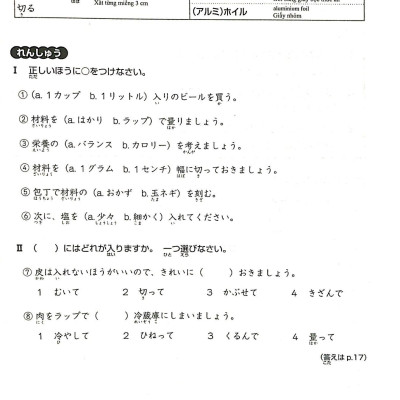 切る
Xắt từng miếng 3 cm
(アルミ)ホイル
aluminium foil
Giấy nhôm
れんしゅう
Ⅰ 正しいほうに○をつけなさい。
①(a. 1カップ b. 1リットル)入りのビールを買う。
②材料を(a. はかり b. ラップ)で量りましょう。
③栄養の(a. バランス b. カロリー)を考えましょう。
④材料を(a. 1グラム b. 1センチ)幅に切っておきましょう。
⑤包丁で材料の(a. おかず b. 玉ネギ)を刻む。
⑥次に、塩を(a. 少々 b. 細かく)入れてください。
Ⅱ ( )にはどれが入りますか。 一つ選びなさい。
⑦皮は入れないほうがいいので、きれいに( )おきましょう。
1 むいて 2 切って 3 かぶせて 4 きざんで
⑧肉をラップで( )冷蔵庫にしまいましょう。
1 冷やして 2 ひねって 3 くるんで 4 量って
(答えは p.17)